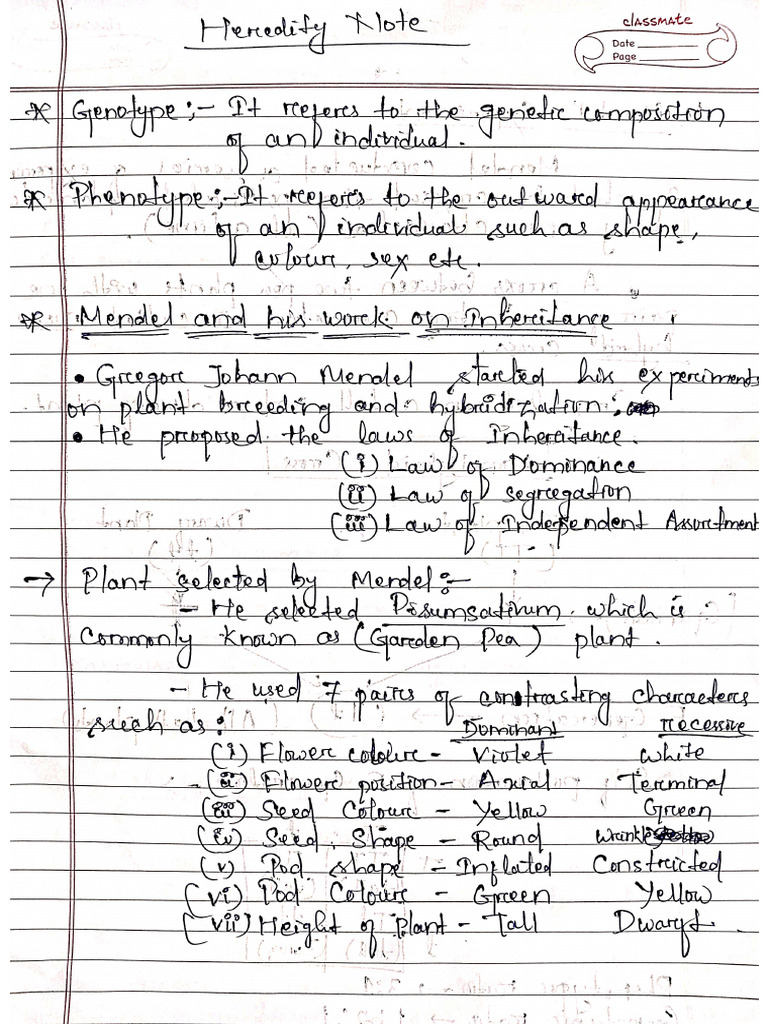 Heredity Note
classmate
Date
Page
* Genotype :- It refers to the genetic composition
of an individual.
* Phenotype :- It refers to the outward appearance
of an individual such as shape,
colour, sex etc.
* Mendel and his work on Inheritance
• Gregor Johann Mendel started his experiments
on plant breeding and hybridization.
• He proposed the laws of Inheritance.
(i) Law of Dominance
(ii) Law of segregation
(iii) Law of Independent Assortment
→ Plant selected by Mendel :-
- He selected Pisumsativum which is
commonly known as (Garden Pea) plant.
- He used 7 pairs of constrasting characters
such as : Dominant recessive
(i) Flower colour - Violet White
(ii) Flower position - Axial Terminal
(iii) Seed Colour - Yellow Green
(iv) Seed Shape - Round Wrinkle
(v) Pod shape - Inflated Constricted
(vi) Pod Colour - Green Yellow
(vii) Height of Plant - Tall Dwarf.